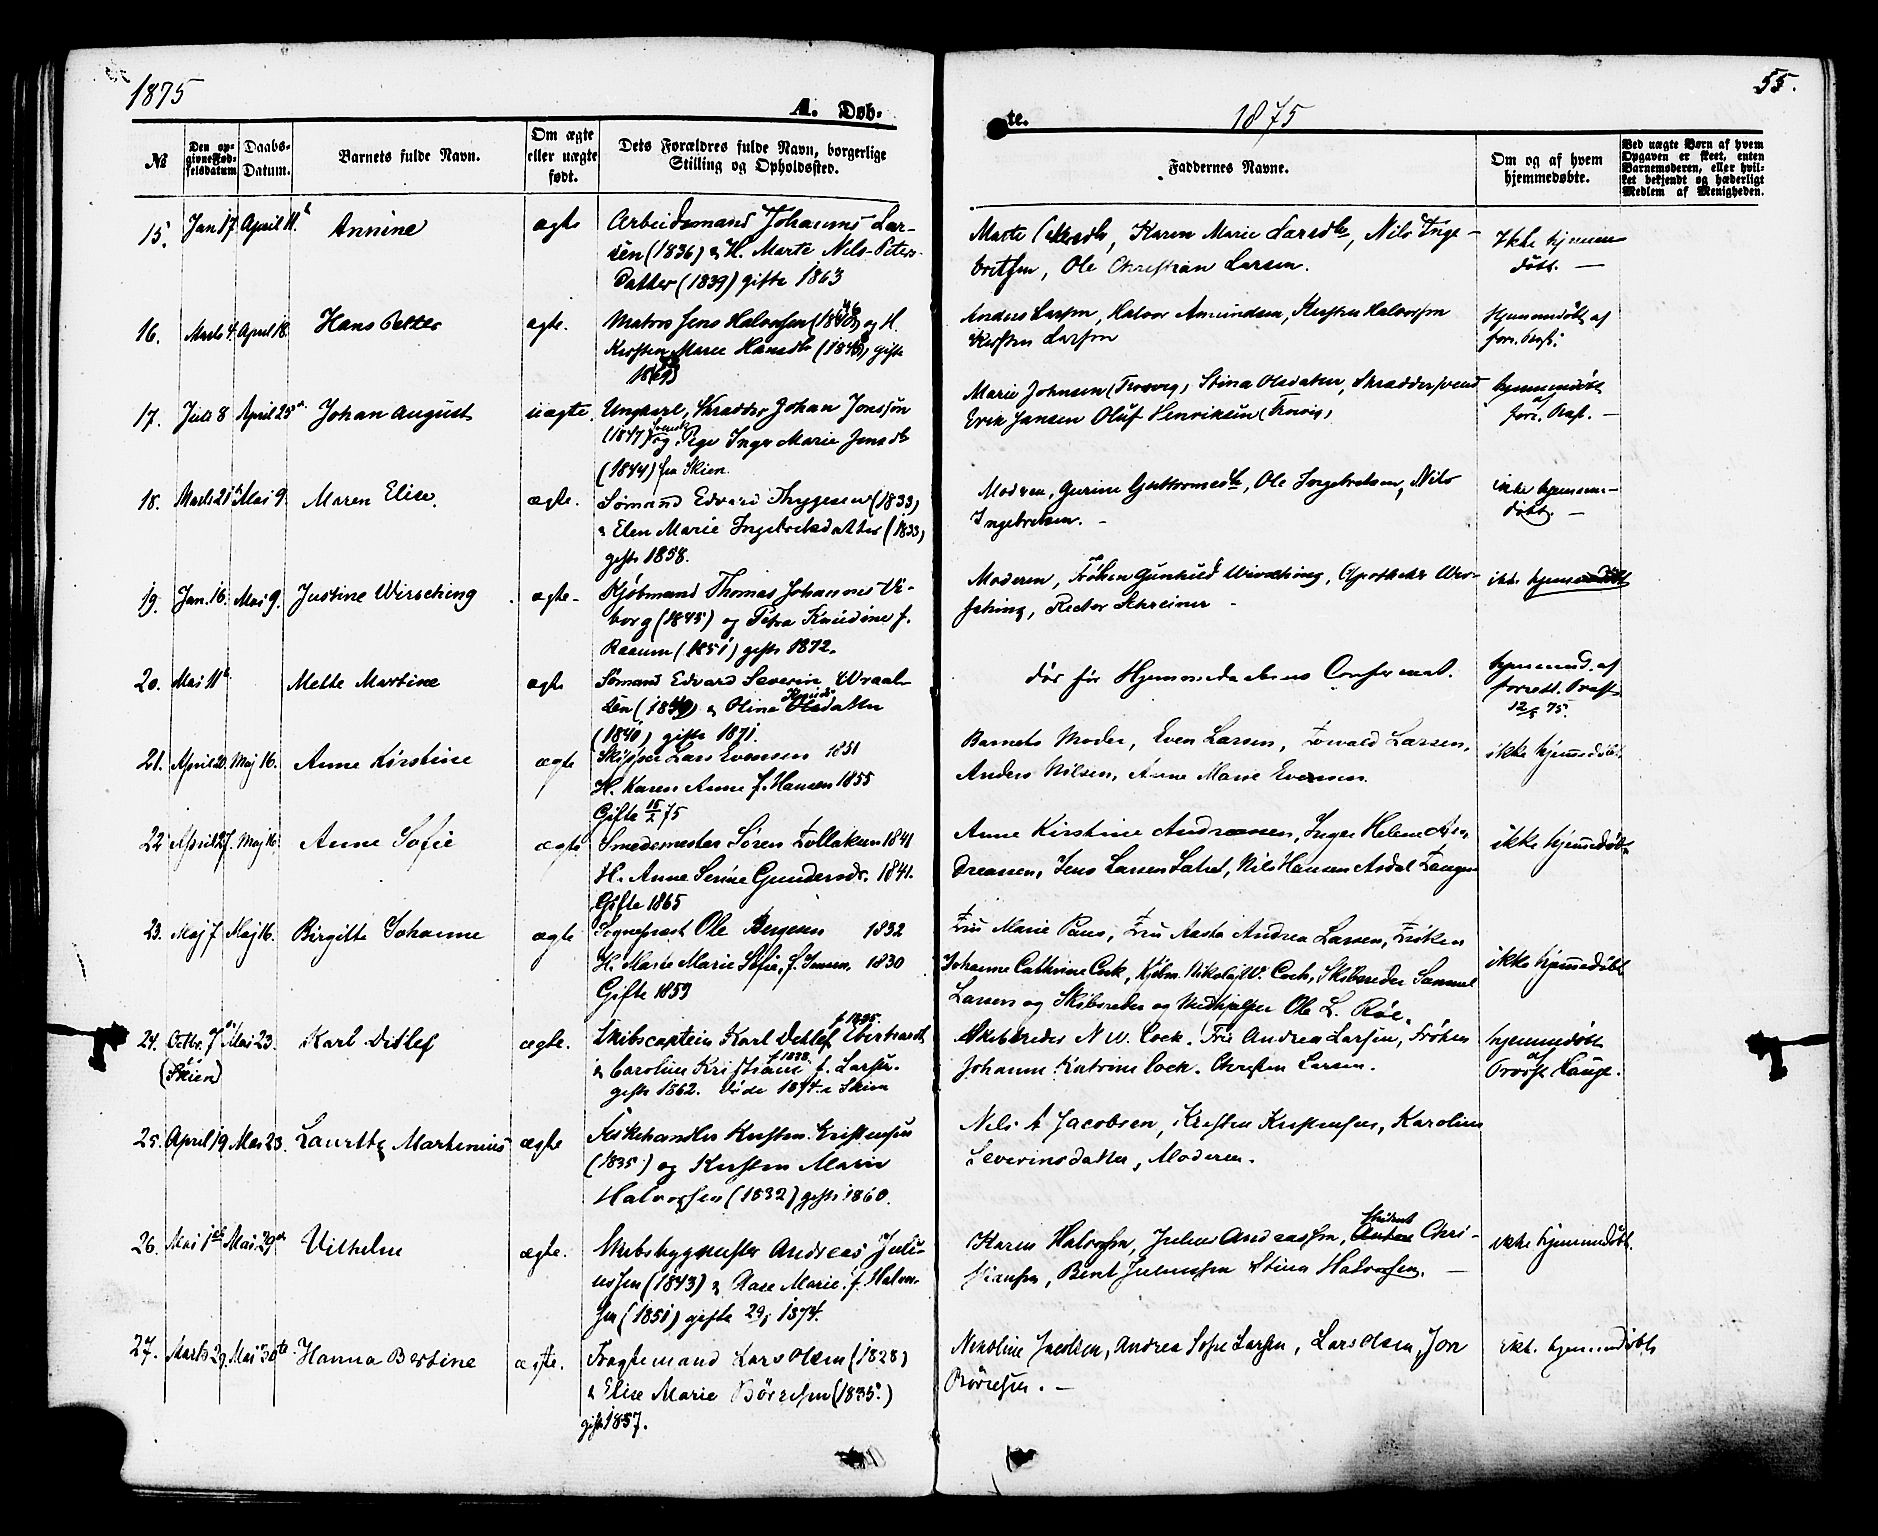 1875
A. Døb-
te.
1875
55.
№
Den opgivne Fødselsdatum
Daabs-Datum.
Barnets fulde Navn.
Om ægte eller uægte født.
Dets Forældres fulde Navn, borgerlige Stilling og Opholdssted.
Faddernes Navne.
Om og af hvem hjemmedøbte.
Ved uægte Børn af hvem Opgaven er skeet, enten Barnemoderen, eller hvilket bekjendt og hæderligt Medlem af Menigheden.
15. Jan 17. April 11. Annine ægte Arbeidsmand Johannes Lar-
sen (1836) & H. Marte Nils-Peters-
Datter (1839) gifte 1863
Karen Marie Larsdtr, Nils Inge-
britsen, Ole Christian Larsen.
Ikke hjemme
døbt. —
16. Marts 4. April 18. Hans Petter ægte. Matros Jens Halvorsen og H.
Kirsten Marie Hansdtr gifte
Anders Larsen, Halvor Amundsen, Kirsten Halvorsen
Kirsten Larsen
Hjemmedøbt af
forr. Præst.
17. Juli 8 April 25 Johan August uægte. Ungkarl, Skrædder Johan Jonsson
(1847) og Pige Inger Marie Jensdtr
(1844) fra Skien.
Marie Johnsen Stina Olsdatter, Skræddersvend
Erik Jansen Oluf Henriksen
hjemmedøbt
af
forr. Præst. —
18. Marts 21 Mai 9. Maren Elise. ægte. Sømand Edvard Thygesen (1833)
& Elen Marie Ingebretsdatter (1833)
gifte 1858.
Modren, Gurine Guttormsdtr, Ole Ingebretsen, Nils
Ingebretsen. —
ikke hjemme-
døbt. —
19. Jan. 16. Mai 9. Justine Wirsching ægte — Kjøbmand Thomas Johannes Vi-
borg (1845) og Petra Knudine f.
Raaum (1851) gifte 1872.
Moderen, Frøken Gunhild Wirsching, Apotheker Wir-
sching, Rector Schreiner —
ikke hjemmedøbt
20. Mai 11 Mette Martine ægte Sømand Edvard Severin
& Oline Knuds Olsdatter
(1840) gifte 1871.
død før Hjemmedaabens Confirmat.
hjemmed. af
forrett. Præst
12/5 75.
21. April 20. Maj 16. Anne Kirstine ægte Skipper Lars Evensen 1851
H. Karen Anne f. Hansen 1855
Gifte 15/2 75
Barnets Moder, Even Larsen, Edvald Larsen,
Anders Nilsen, Anne Marie Evensen.
ikke hjemmedøbt.
22 April 27. Maj 16. Anne Sofie ægte Smedemester Søren Tollaksen 1841
H. Anne Serine Gundersdr. 1841.
Gifte 1865
Anne Kirstine Andreassen, Inger Helene An-
dreassen, Jens Larsen Nils Hansen Aadal Langen
ikke hjemmedøbt
23. Maj 7 Maj 16. Birgitte Johanne ægte Sognepræst Ole Bergesen 1832
H. Marte Marie Sofie, f. Jensen. 1830
Gifte 1853
Fru Marie Paus, Fru Aasta Andrea Larsen, Frøken
Johanne Cathrine Cock, Kjøbm. Nikolaj W. Cock, Skibsreder Samuel
Larsen og Skibsreder og Medhjælper Ole L. Røe.
ikke hjemmedøbt
24. Octbr. 7 Mai 23. Karl Ditlef ægte. Skibscaptein Karl Detlef Eberhardt f. 1835.
& Caroline Kristiane f. Larsen. f. 1838
gifte 1862. døde 1874 i Skien
(i Skien)
Skibsreder N W. Cock. Fru Andrea Larsen, Frøken
Johanne Katrine Cock. Christen Larsen.
hjemmedøbt
af
Provst Lange.
25. April 19. Mai 23. Lauritz Marthinius ægte Fiskehandler Kristen Kristensen
(1835) og Kirsten Marie
Halvorsen (1832) gifte 1860.
Nils A Jacobsen, Kristen Kristensen, Karoline
Severinsdatter, Moderen.
26. Mai 1 Mai 29 Vilhelm ægte. Skibsbygmester Andreas Juli-
ussen (1843) & Aase Marie f. Halvor-
sen (1851) gifte 1874.
Karen Halvorsen, Julius Andreassen, Student Anton Chri-
stiansen, Bent Juliussen Stina Halvorsen. —
ikke hjemmedøbt.
27. Marts 29 Mai 30te. Hanna Bertine ægte. Fragtemand Lars Olsen (1828)
& Elise Marie Børresen (1835)
gifte 1857.
Nikoline Jacobsen, Andrea Sofie Larsen, Lars Olsen, Jon
Børresen. —
ikke hjemmedøbt